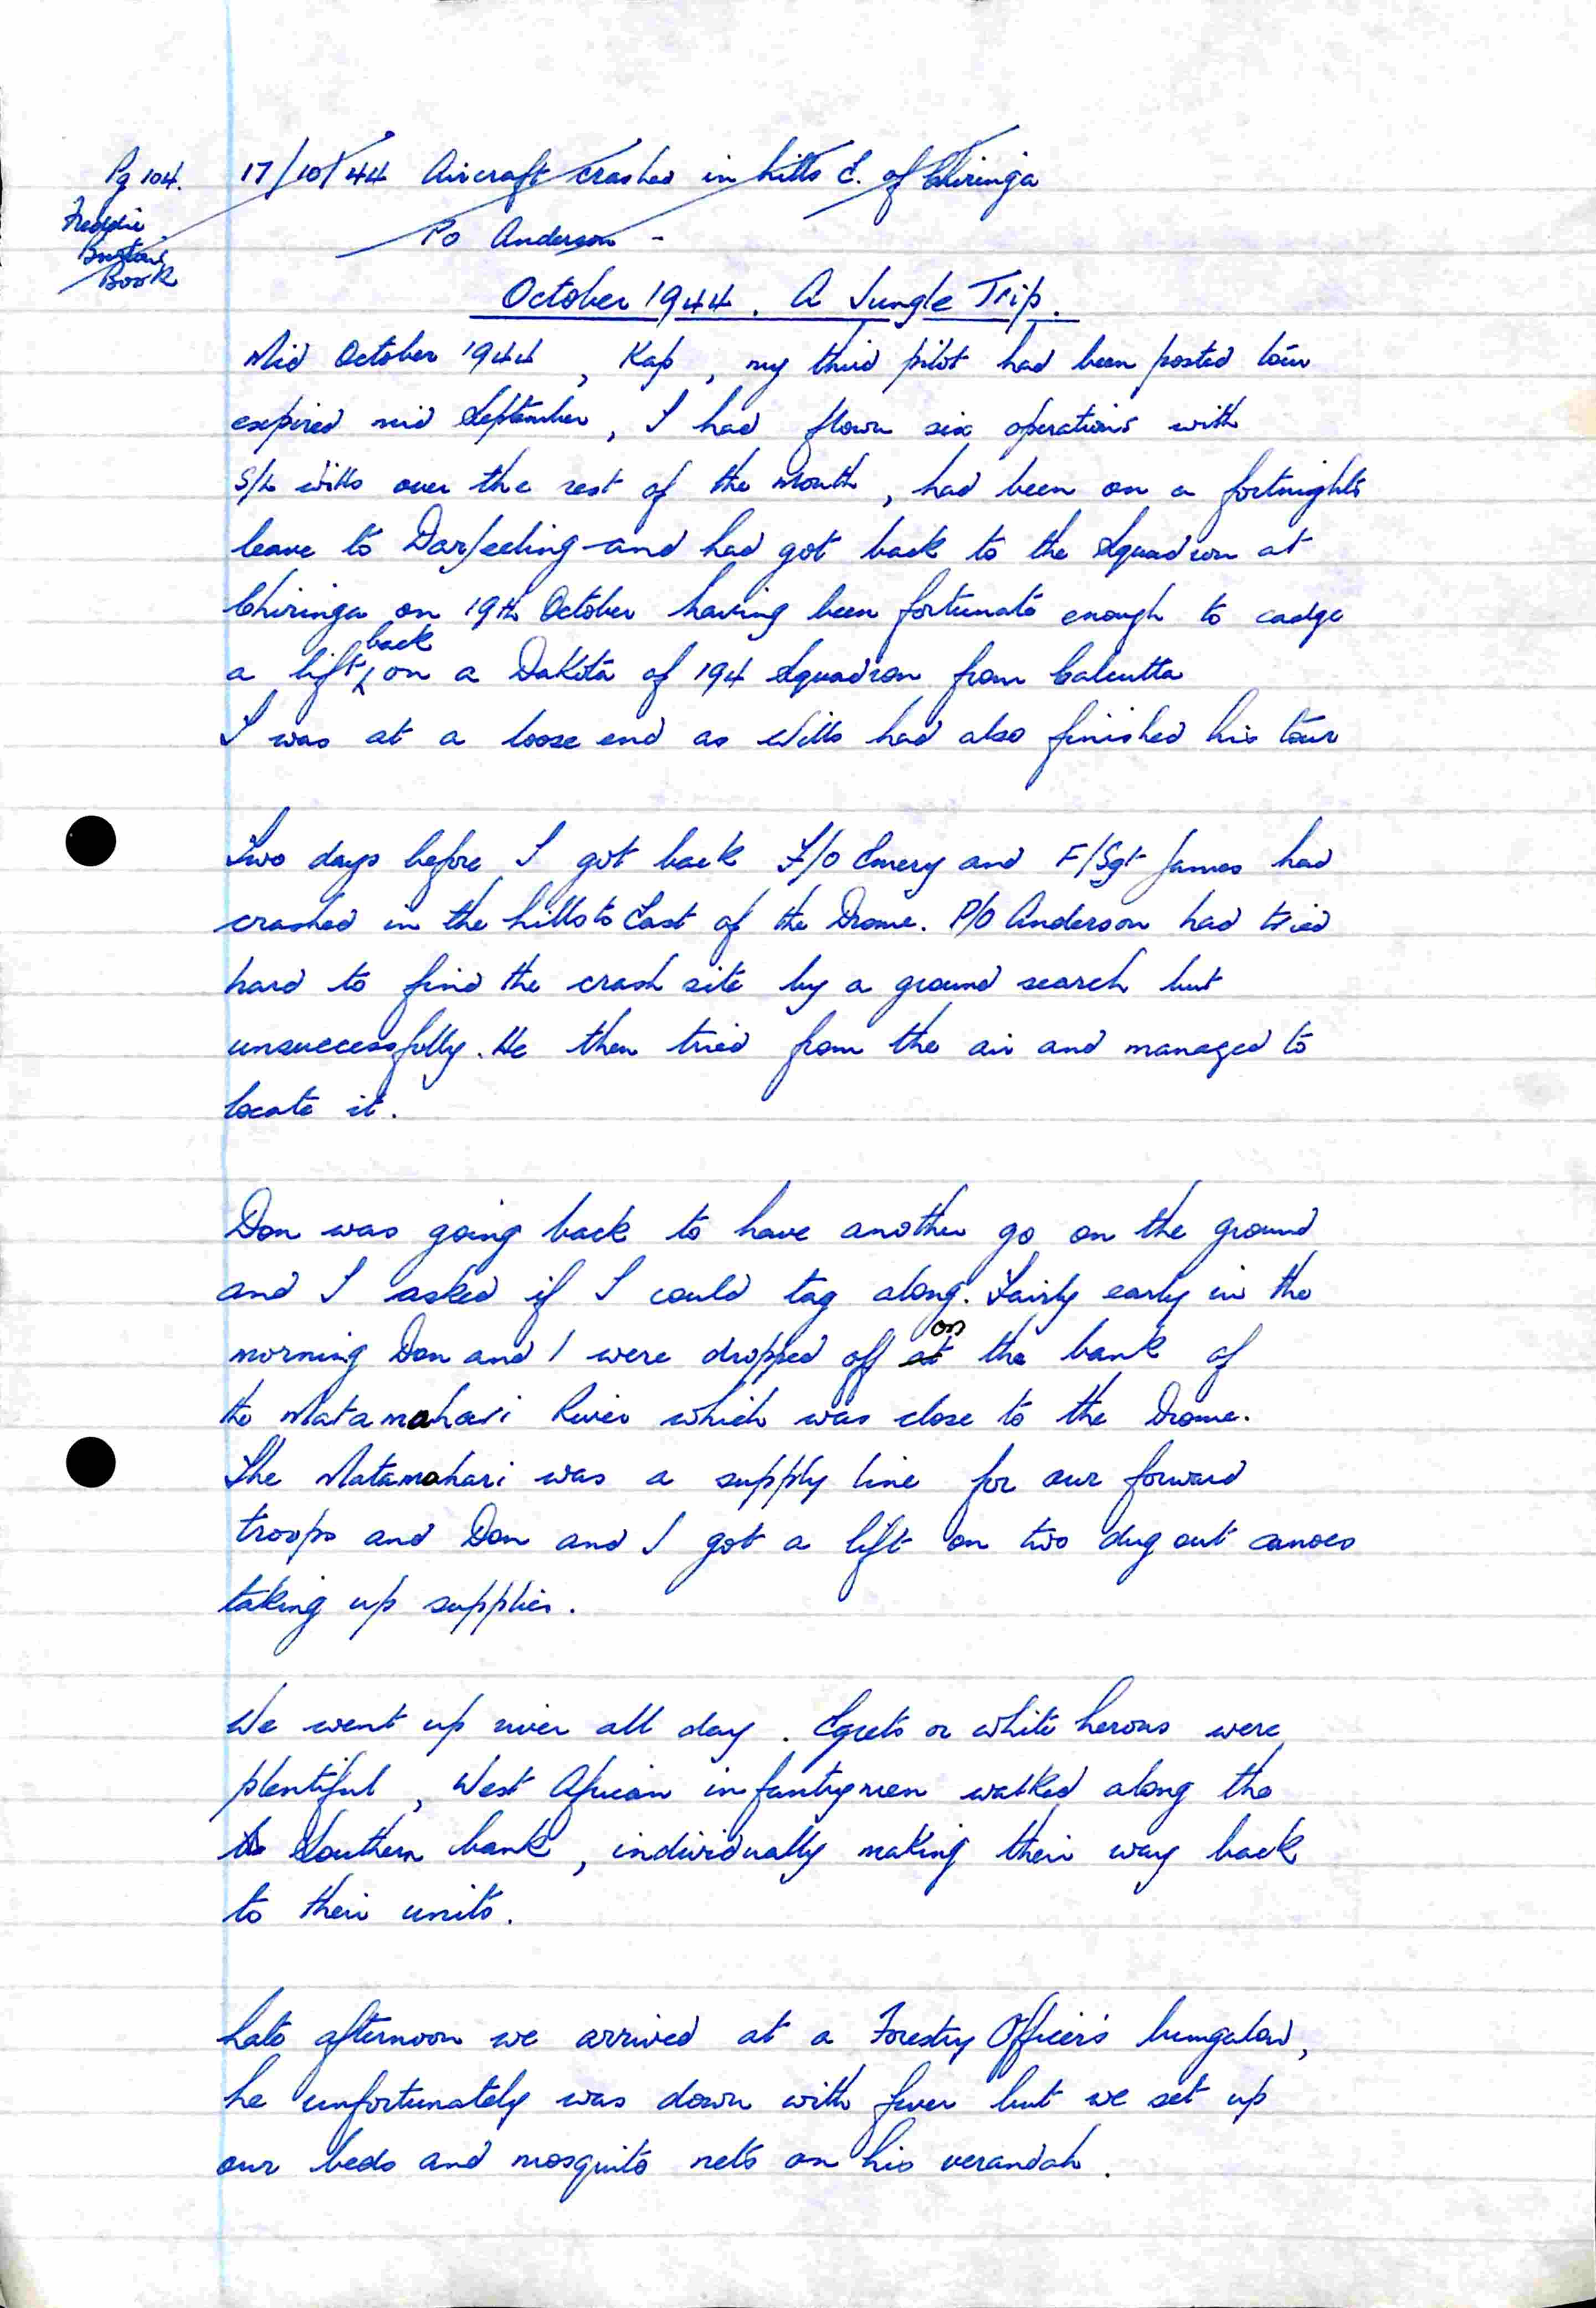 Pg 104. 17/10/44 Aircraft crashed in hills E. of Chiringa
Freddie
Po Anderson -
Book
October 1944. A Jungle Trip.
Mid October 1944, Kap, my third pilot had been posted tour
expired mid September, I had flown six operations with
S/L Wills over the rest of the Month, had been on a fortnights
leave to Darjeeling and had got back to the Squadron at
Chiringa on 19th October having been fortunate enough to cadge
a lift back on a Dakota of 194 Squadron from Calcutta
I was at a loose end as Wills had also finished his tour
Two days before I got back F/O Emery and F/Sgt James had
crashed in the hills to East of the Drome. P/O Anderson had tried
hard to find the crash site by a ground search but
unsuccessfully. He then tried from the air and managed to
locate it.
Don was going back to have another go on the ground
and I asked if I could tag along. Fairly early in the
morning Don and I were dropped off at on the bank of
the Matamahari River which was close to the Drome.
The Matamahari was a supply line for our forward
troops and Don and I got a lift on two dug out canoes
taking up supplies.
We went up river all day. Egrets or white herons were
plentiful, West African infantrymen walked along the
the Southern bank, individually making their way back
to their units.
Late afternoon we arrived at a Forestry Officer's bungalow,
he unfortunately was down with fever but we set up
our beds and mosquito nets on his verandah.